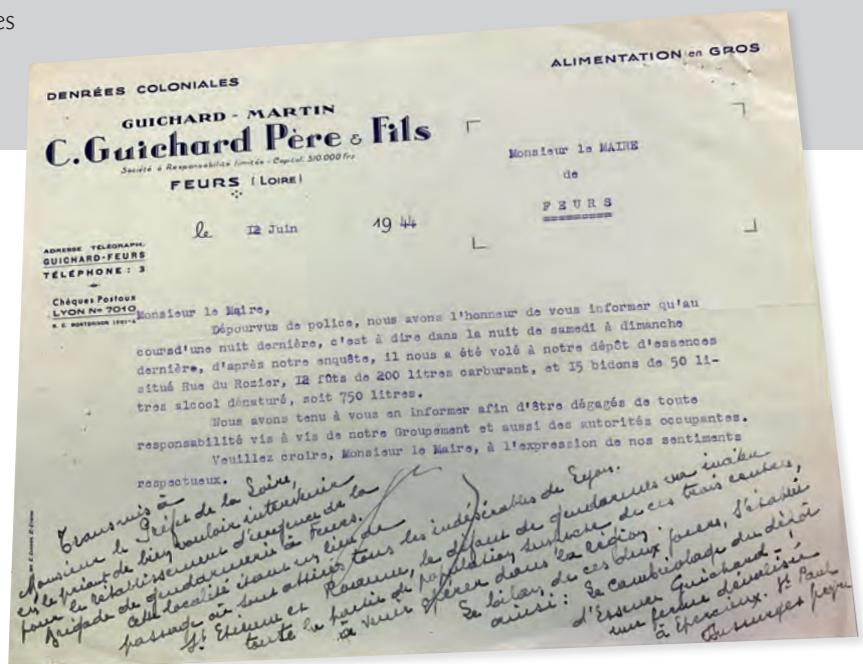 es
DENRÉES COLONIALES
ALIMENTATION en GROS
GUICHARD - MARTIN
C. Guichard Père & Fils
Société à Responsabilité limitée - Capital: 510.000 frs
FEURS (LOIRE)
Monsieur le MAIRE
de
FEURS
le 12 Juin 1944
ADRESSE TÉLÉGRAPH.
GUICHARD-FEURS
TÉLÉPHONE : 3
Chèques Postaux
LYON No 7010
Monsieur le Maire,
Dépourvus de police, nous avons l'honneur de vous informer qu'au
coursd'une nuit dernière, c'est à dire dans la nuit de samedi à dimanche
dernière, d'après notre enquête, il nous a été volé à notre dépôt d'essences
situé Rue du Rozier, 12 fûts de 200 litres carburant, et 15 bidons de 50 li-
tres alcool dénaturé, soit 750 litres.
Nous avons tenu à vous en informer afin d'être dégagés de toute
responsabilité vis à vis de notre Groupement et aussi des autorités occupantes.
Veuillez croire, Monsieur le Maire, à l'expression de nos sentiments
respectueux.
Transmis à
Monsieur le Préfet de la Loire,
en le priant de bien vouloir intervenir
pour le rétablissement d'urgence de la
Brigade de gendarmerie à Feurs.
Cette localité étant un lieu de
passage où sont attirés tous les indésirables de Lyon.
St Etienne et Roanne, le départ de gendarmes va inciter
toute la partie de population suspecte de ces trois centres,
à venir opérer dans la région.
Le bilan de ces deux jours, s'établit
ainsi : Le cambriolage du dépôt
d'Essence Guichard -
une ferme dévalisée
à Epercieux. St Paul